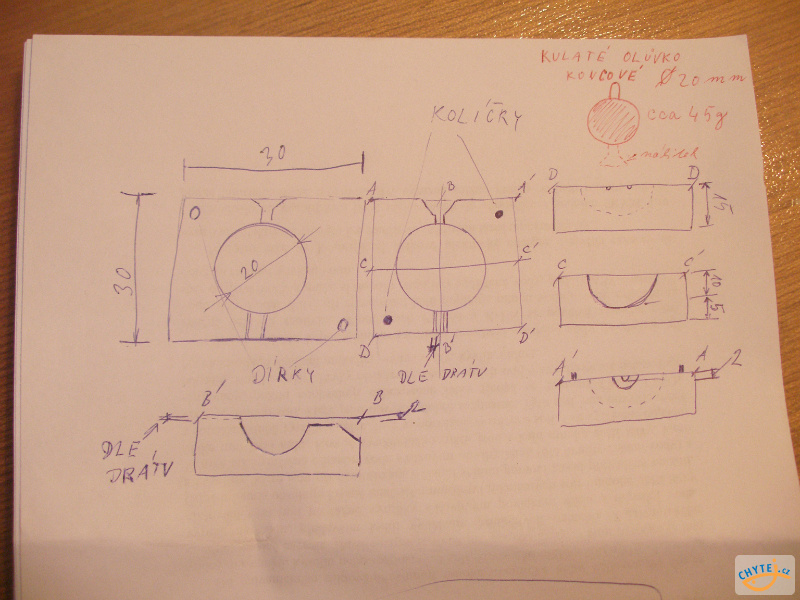 KULATÉ OLŮVKO
KONCOVÉ Ø 20 mm
cca 45g
nálitek
KOLÍČKY
30
30
20
A
B
A'
C
C'
D
B'
D'
DÍRKY
DLE DRÁTU
D
D
15
C
C'
10
5
A'
A
2
B'
B
2
DLE
DRÁTU
CHYTEJ.cz